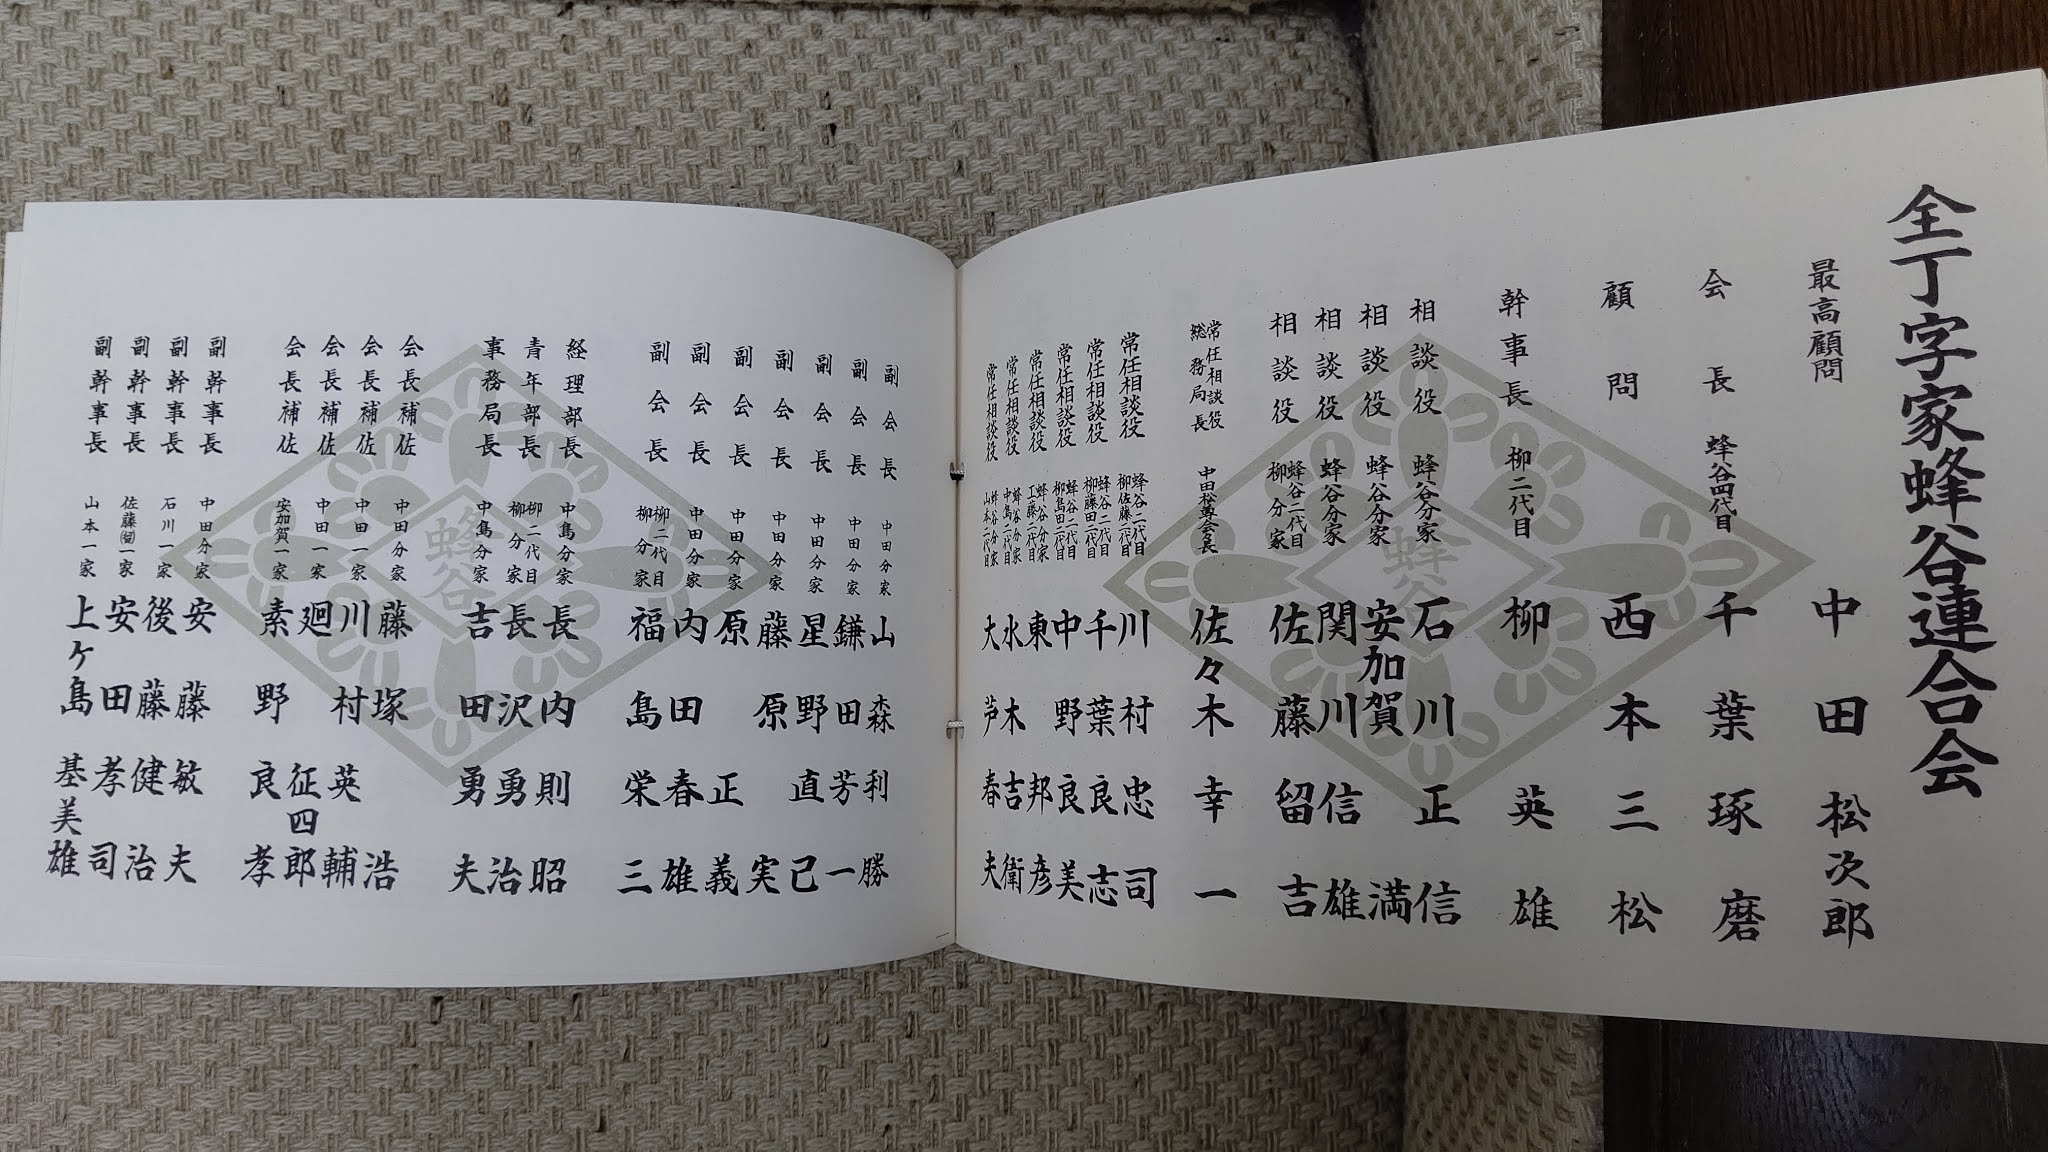 全丁字家蜂谷連合会
最高顧問 中田松次郎
会長 蜂谷四代目 千葉琢磨
顧問 西本三松
幹事長 柳二代目 柳英雄
相談役 蜂谷分家 石川正信
相談役 蜂谷分家 安加賀満
相談役 蜂谷分家 関川信雄
相談役 蜂谷二代目 柳分家 佐藤留吉
常任相談役 総務局長 中田松尊会長 佐々木幸一
常任相談役 蜂谷二代目 柳佐藤二代目 川村忠司
常任相談役 蜂谷二代目 柳藤田二代目 千葉良志
常任相談役 蜂谷二代目 柳島田二代目 中野良美
常任相談役 蜂谷分家 工藤二代目 東邦彦
常任相談役 蜂谷分家 中島二代目 水木吉衛
常任相談役 蜂谷分家 山本二代目 大芦春夫
蜂谷
副会長 中田分家 山森利勝
副会長 中田分家 鎌田芳一
副会長 中田分家 星野直己
副会長 藤原実
副会長 中田分家 原正義
副会長 中田分家 内田春雄
副会長 柳二代目 柳分家 福島栄三
経理部長 中島分家 長内則昭
青年部長 柳二代目 柳分家 長沢勇治
事務局長 中島分家 吉田勇夫
会長補佐 中田分家 藤塚浩
会長補佐 中田一家 川村英輔
会長補佐 中田一家 廻征四郎
会長補佐 安加賀一家 素野良孝
副幹事長 中田分家 安藤敏夫
副幹事長 石川一家 後藤健治
副幹事長 佐藤(留)一家 安田孝司
副幹事長 山本一家 上ヶ島基美雄
蜂谷